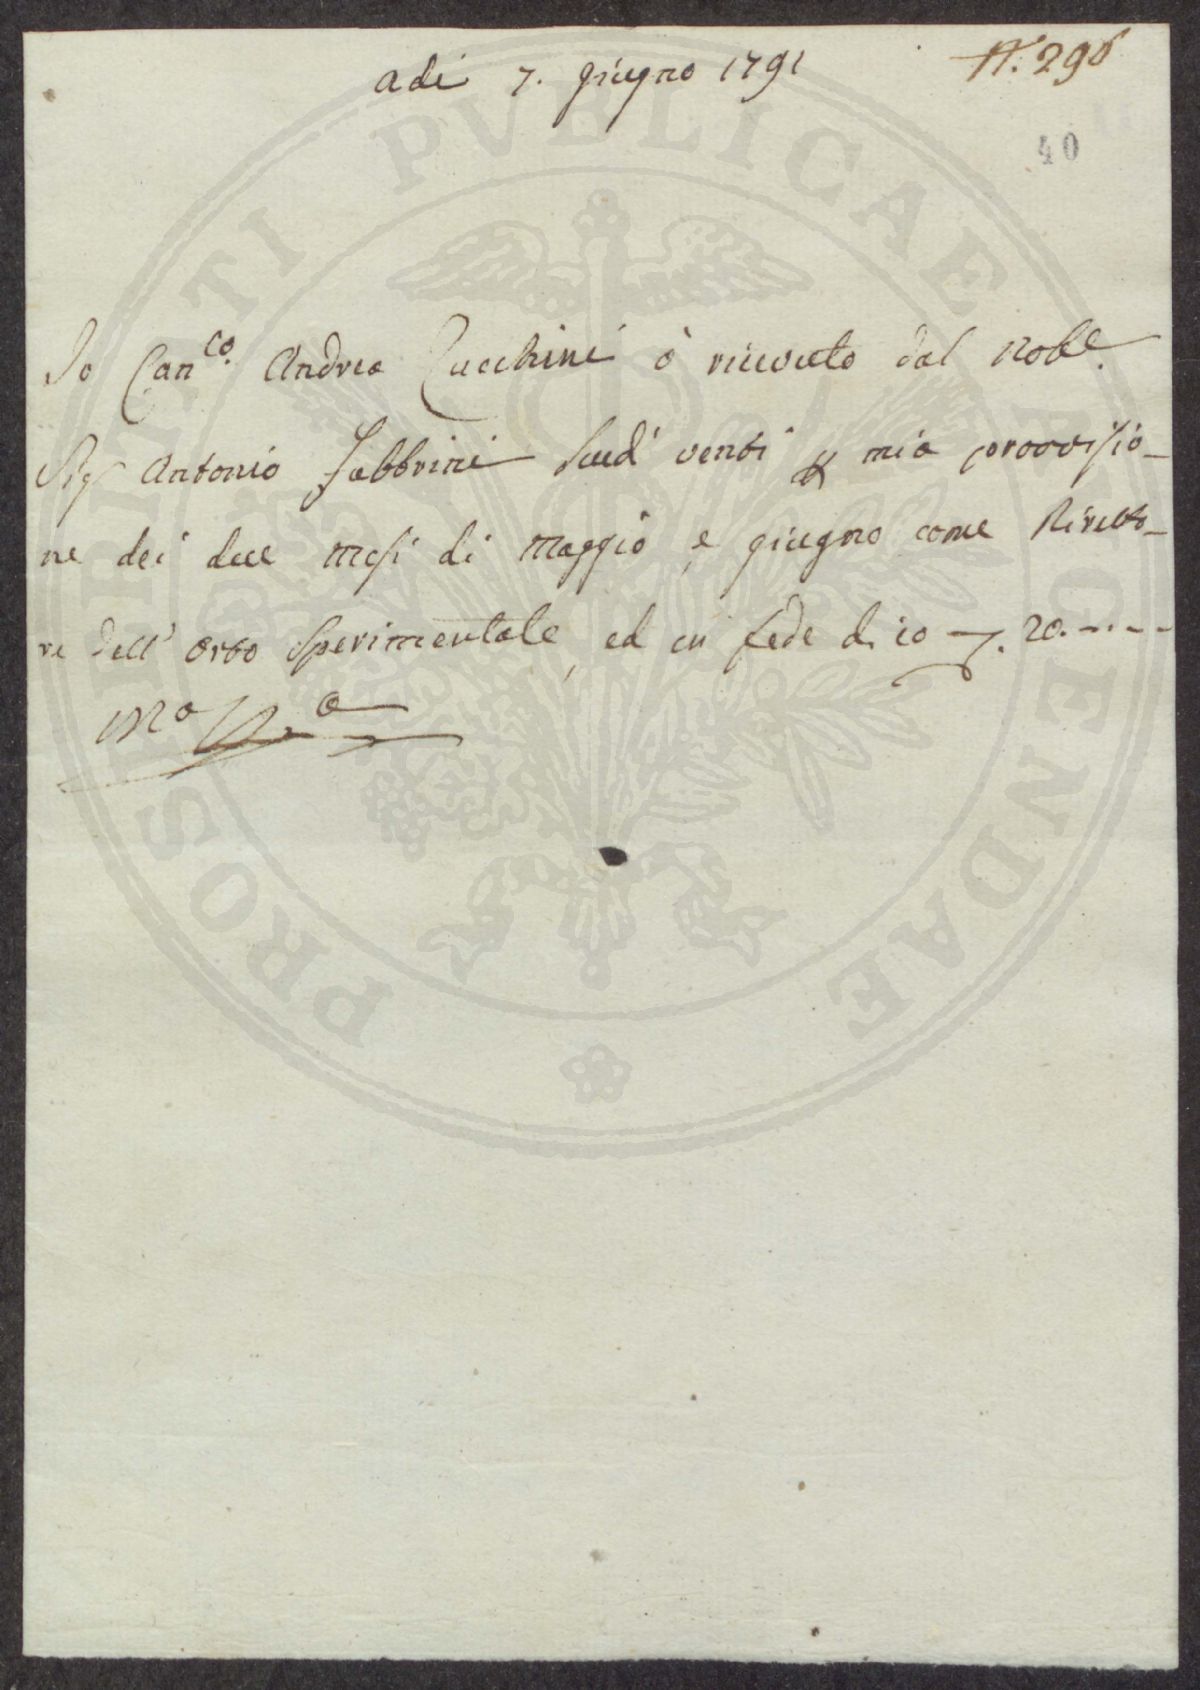 adi 7. giugno 1791
N. 298
40
Io Can.co Andrea Zucchini ò ricevuto dal Nobe.
Sigr Antonio Fabbrini Scudi venti p mia provvisio-
ne dei due mesi di Maggio, e giugno come Diretto-
re dell' orto Sperimentale, ed in fede dico 20.----
Mo Pa
PROSPERITATI PVBLICAE AVGENDAE